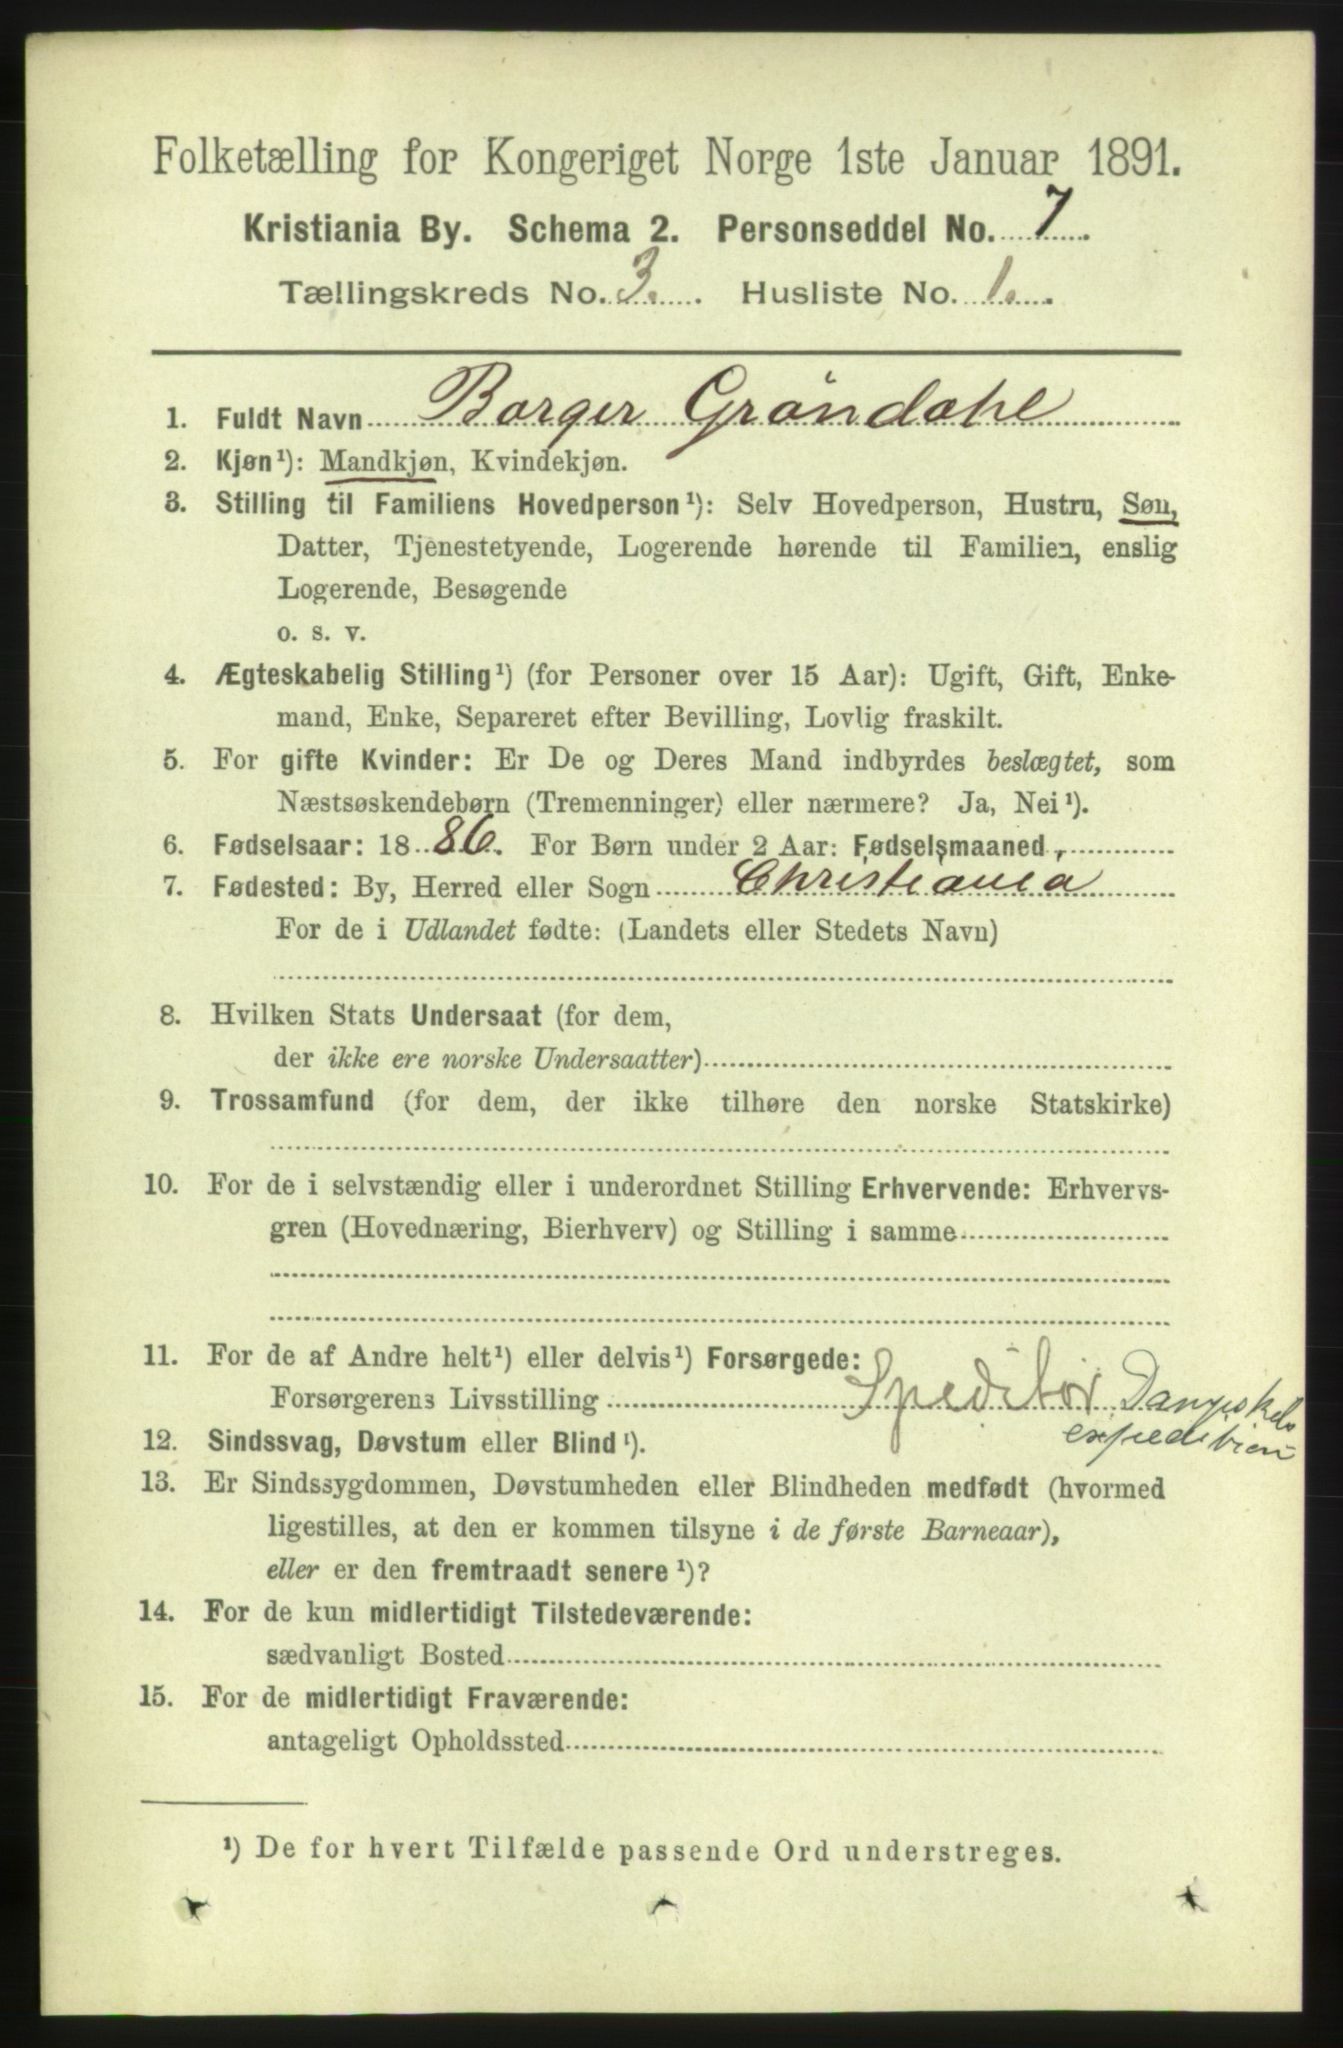 Folketælling for Kongeriget Norge 1ste Januar 1891.
Kristiania By. Schema 2. Personseddel No. 7
Tællingskreds No. 3. Husliste No. 1.
1. Fuldt Navn Borger Gröndahl
2. Kjøn¹): Mandkjøn, Kvindekjøn.
3. Stilling til Familiens Hovedperson¹): Selv Hovedperson, Hustru, Søn,
Datter, Tjenestetyende, Logerende hørende til Familien, enslig
Logerende, Besøgende
o. s. v.
4. Ægteskabelig Stilling¹) (for Personer over 15 Aar): Ugift, Gift, Enke-
mand, Enke, Separeret efter Bevilling, Lovlig fraskilt.
5. For gifte Kvinder: Er De og Deres Mand indbyrdes beslægtet, som
Næstsøskendebørn (Tremenninger) eller nærmere? Ja, Nei¹).
6. Fødselsaar: 1886. For Børn under 2 Aar: Fødselsmaaned
7. Fødested: By, Herred eller Sogn Christiania
For de i Udlandet fødte: (Landets eller Stedets Navn)
8. Hvilken Stats Undersaat (for dem,
der ikke ere norske Undersaatter)
9. Trossamfund (for dem, der ikke tilhøre den norske Statskirke)
10. For de i selvstændig eller i underordnet Stilling Erhvervende: Erhvervs-
gren (Hovednæring, Bierhverv) og Stilling i samme
11. For de af Andre helt¹) eller delvis¹) Forsørgede:
Forsørgerens Livsstilling Speditør Dampskibs
expedition
12. Sindssvag, Døvstum eller Blind¹).
13. Er Sindssygdommen, Døvstumheden eller Blindheden medfødt (hvormed
ligestilles, at den er kommen tilsyne i de første Barneaar),
eller er den fremtraadt senere¹)?
14. For de kun midlertidigt Tilstedeværende:
sædvanligt Bosted
15. For de midlertidigt Fraværende:
antageligt Opholdssted
¹) De for hvert Tilfælde passende Ord understreges.